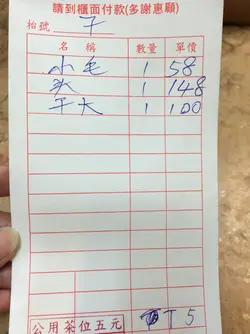 請到櫃面付款(多謝惠顧)
枱號 7
名稱 數量 單價
小毛 1 58
头 1 148
干大 1 100
公用茶位五元 T 5